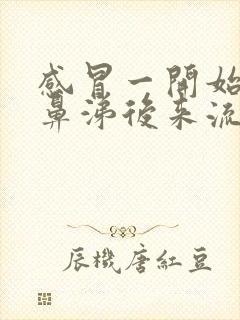 感冒一開始
鼻涕後来流
辰機唐紅豆